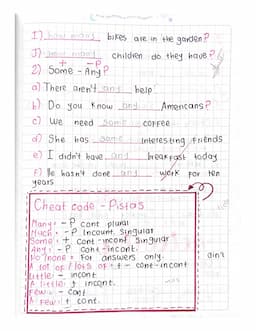 I) how many bikes are in the garden?
J) how many children do they have?
+ -?
2) Some - Any?
a) There aren't any help
b) Do you know any Americans?
c) We need some coffee
d) She has some interesting friends
e) I didn't have any breakfast today
F) He hasn't done any work for ten
years
Cheat code - Pistas
Many: -? cont plural
Much: -? incount singular
Some: + cont-incont singular
Any: -? cont-incont.
No/none: For answers only.
A lot of / lots of: + - cont-incont
Little: - incont
A little: + incont.
Few: - cont
A few: + cont.